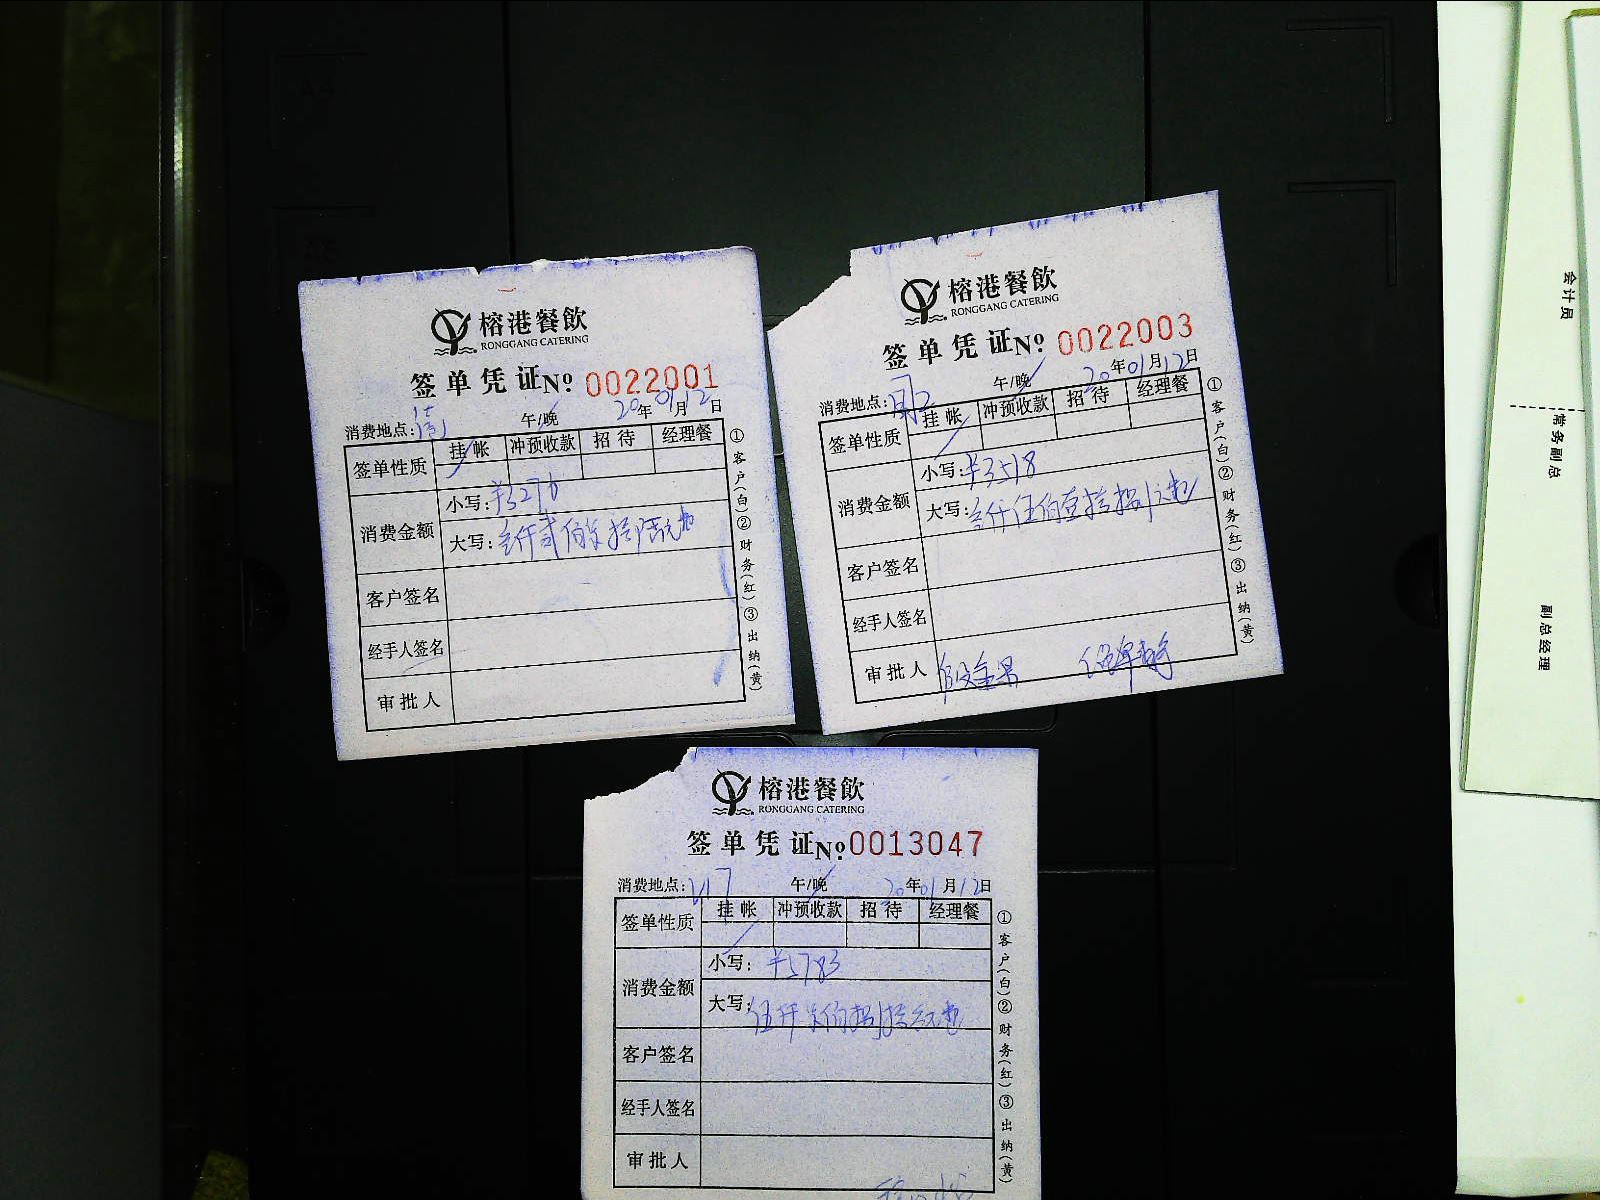 榕港餐飲
RONGGANG CATERING
签单凭证№ 0022001
消费地点: 午/晚 20年01月12日
签单性质 挂帐 冲预收款 招待 经理餐
消费金额 小写:¥3276
大写:叁仟贰佰柒拾陆元整
客户签名
经手人签名
审批人
①客户(白)②财务(红)③出纳(黄)
榕港餐飲
RONGGANG CATERING
签单凭证№ 0022003
消费地点: 午/晚 20年01月12日
签单性质 挂帐 冲预收款 招待 经理餐
消费金额 小写:¥3518
大写:叁仟伍佰壹拾捌元整
客户签名
经手人签名
审批人
①客户(白)②财务(红)③出纳(黄)
榕港餐飲
RONGGANG CATERING
签单凭证№ 0013047
消费地点: 午/晚 20年01月12日
签单性质 挂帐 冲预收款 招待 经理餐
消费金额 小写:¥5783
大写:伍仟柒佰捌拾叁元整
客户签名
经手人签名
审批人
①客户(白)②财务(红)③出纳(黄)
会计员
常务副总
副总经理